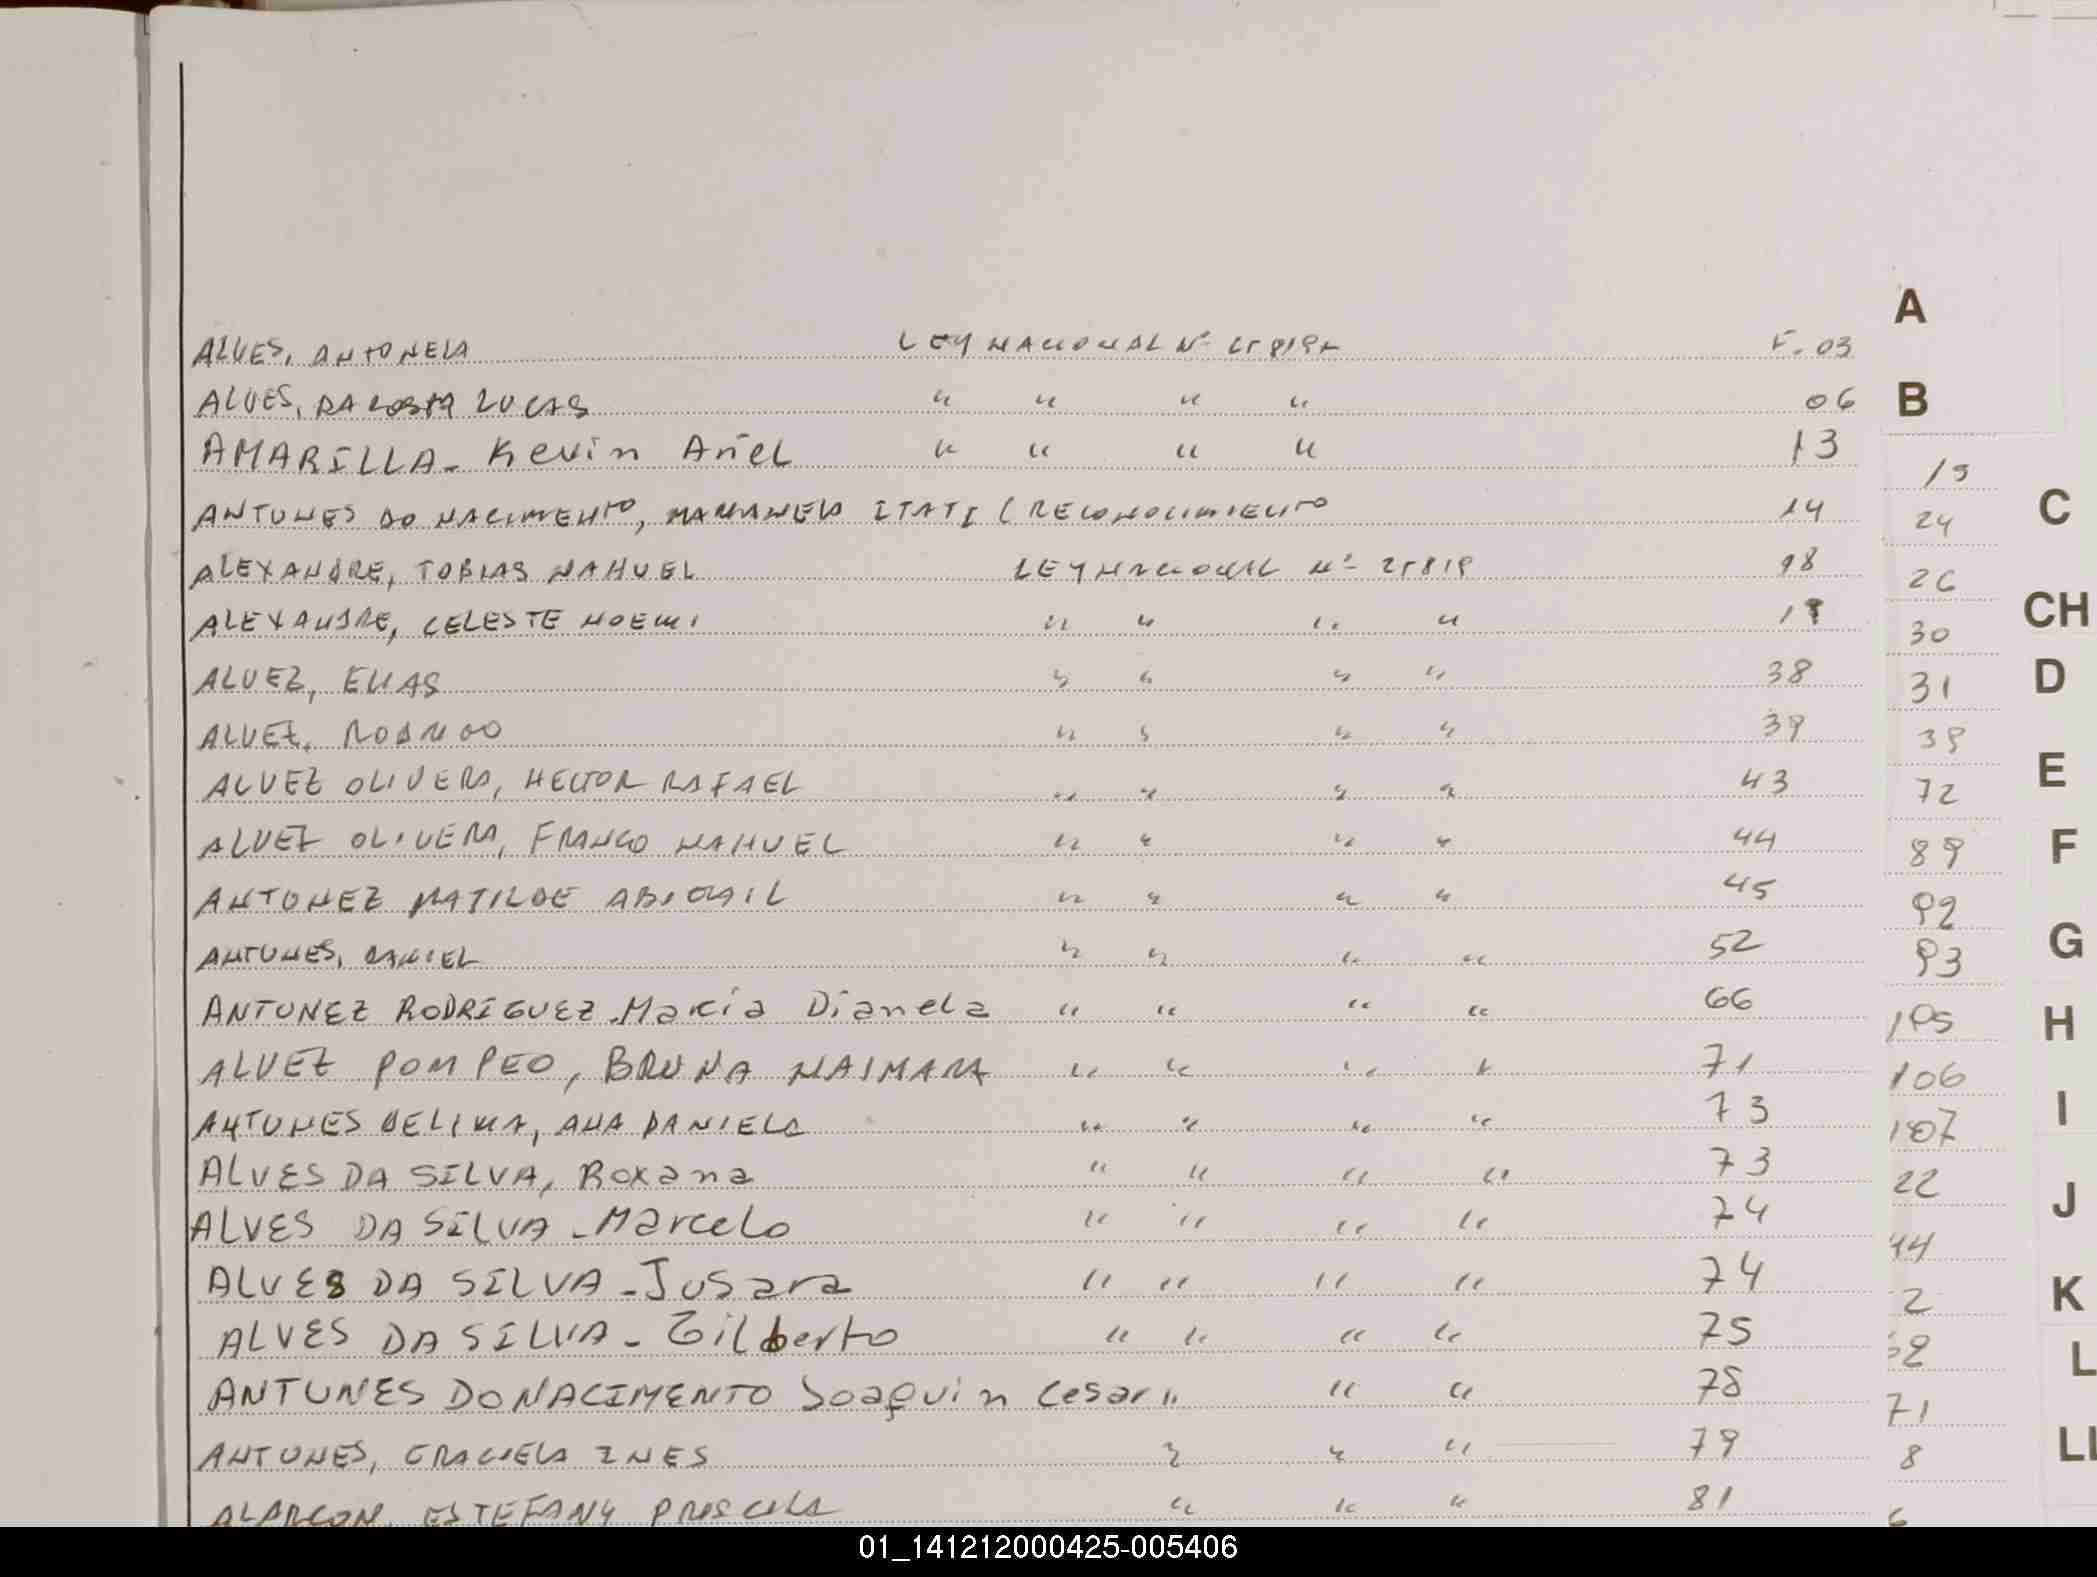 ALVES, ANTONELA LEY NACIONAL Nº 25819 F. 03
ALVES, DA COSTA LUCAS " " " " 06
AMARILLA - Kevin Ariel " " " " 13
ANTUNES DO NACIMENTO, MARIANELA ITATI (RECONOCIMIENTO 14
ALEXANDRE, TOBIAS NAHUEL LEY NACIONAL Nº 25819 18
ALEXANDRE, CELESTE NOEMI " " " " 19
ALVEZ, ELIAS " " " " 38
ALVEZ, RODRIGO " " " " 39
ALVEZ OLIVERA, HECTOR RAFAEL " " " " 43
ALVEZ OLIVERA, FRANCO NAHUEL " " " " 44
ANTONEZ MATILDE ABIGAIL " " " " 45
ANTUNES, DANIEL " " " " 52
ANTUNEZ RODRIGUEZ - Maria Dianela " " " " 66
ALVEZ POMPEO, BRUNA NAIMARA " " " " 71
ANTUNES DELIMA, ANA DANIELA " " " " 73
ALVES DA SILVA, Roxana " " " " 73
ALVES DA SILVA - Marcelo " " " " 74
ALVES DA SILVA - Jusara " " " " 74
ALVES DA SILVA - Gilberto " " " " 75
ANTUNES DO NACIMENTO Joaquin Cesar " " " 78
ANTUNES, GRACIELA INES " " " 79
ALARCON, ESTEFANY PRISCILA " " " 81
A
B
19
C
24
26
CH
30
D
31
39
E
72
F
89
92
G
93
105
H
106
I
107
22
J
44
K
2
L
71
LL
8
01_141212000425-005406